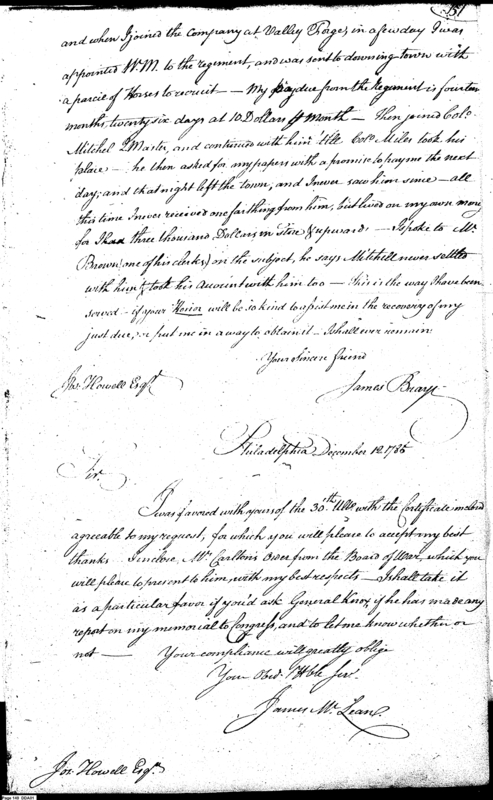 151
and when I joined the Company at Valley Forge, in a few day I was
appointed W.M. to the regiment, and was sent to downing town with
a parcel of Horses to recruit — My pay due from the Regiment is fourteen
months, twenty six days at 10 Dollars Month — Then joined Colo.
Mitchel Master, and continued with him till Colo. Miles took his
place — he then asked for my papers with a promise to pay me the next
day; and that night left the town, and I never saw him since — all
this time I never received one farthing from him, but lived on my own money
for I had three thousand Dollars in store & upwards — I spoke to Mr.
Brown (one of his clerks) on the subject, he says Mitchell never settled
with him & took his Account with him too — This is the way I have been
served — if your Honor will be so kind to assist me in the recovery of my
just due, or put me in a way to obtain it — I shall ever remain
Your Sincere friend
James Beary
Jos. Howell Esqr.
Philadelphia December 12. 1786
Sir.
I was favored with yours of the 30th. Ulto. with the Certificate inclosed
agreeable to my request, for which you will please to accept my best
thanks. I inclose, Mr. Carlton's from the Board of War, which you
will please to present to him, with my best respects — I shall take it
as a particular favor if you'd ask General Knox if he has made any
report on my memorial to Congress, and to let me know whether or
not — Your compliance will greatly oblige
Your Obed. Hble Ser.
James Mc. Lean.
Jos. Howell Esqr.
Page 149